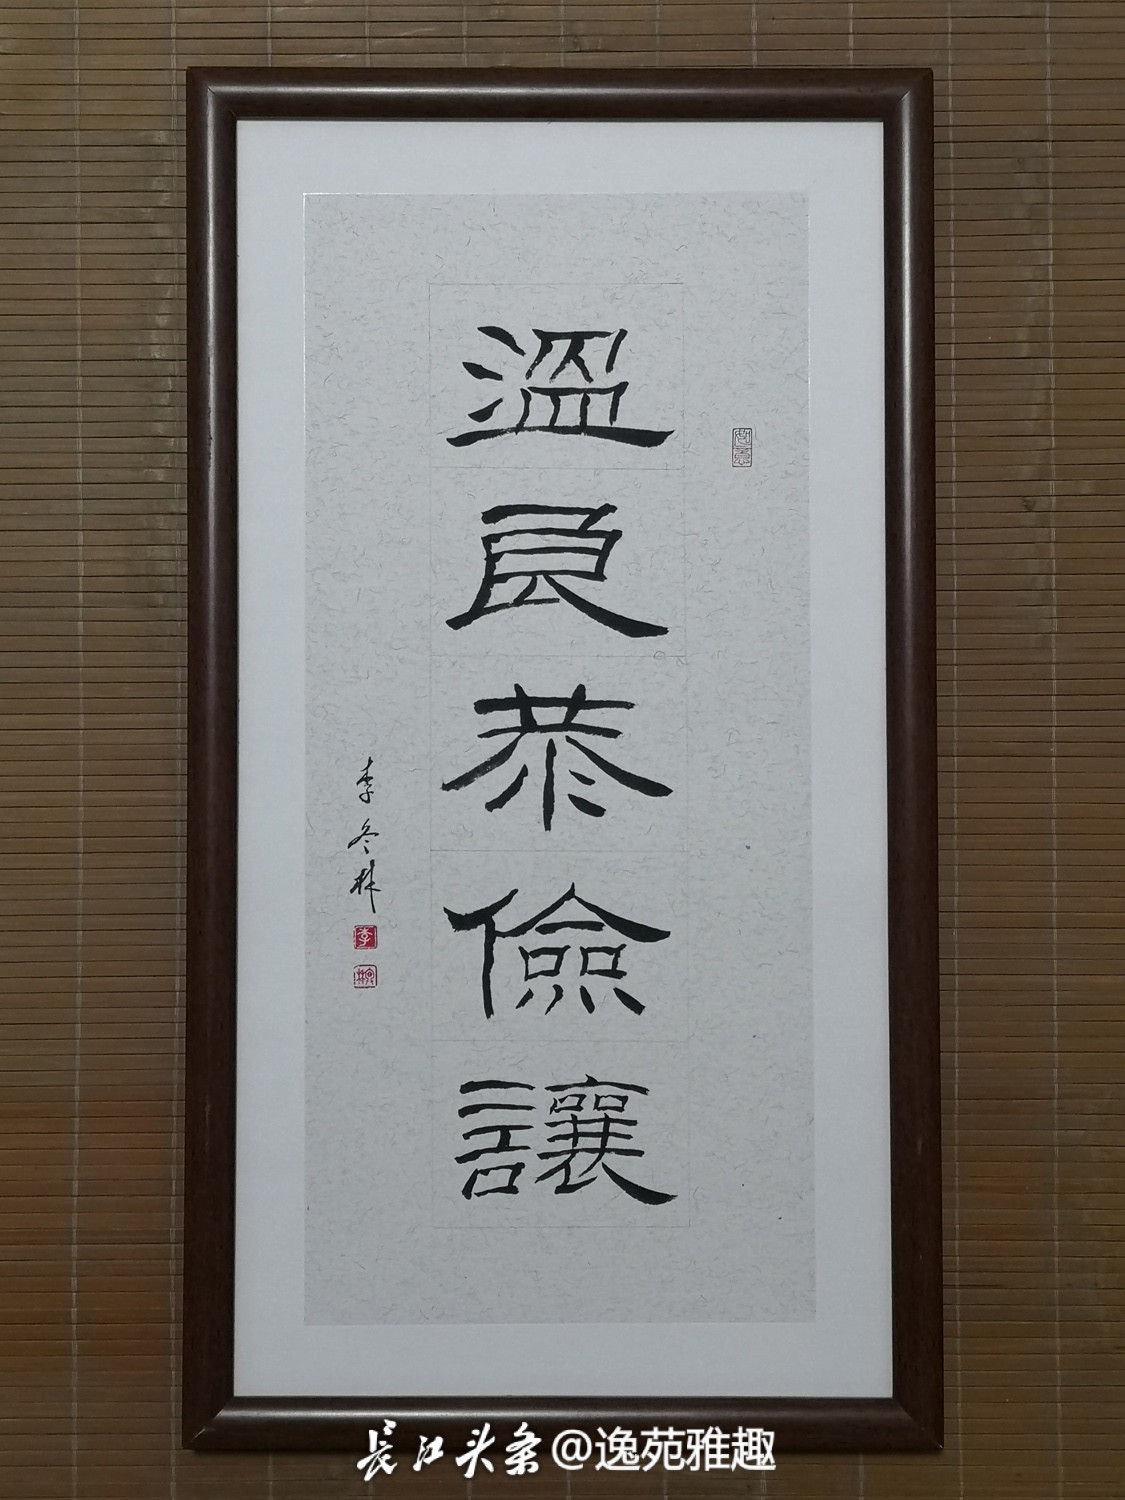 溫良恭儉讓
李冬林
长江头条@逸苑雅趣